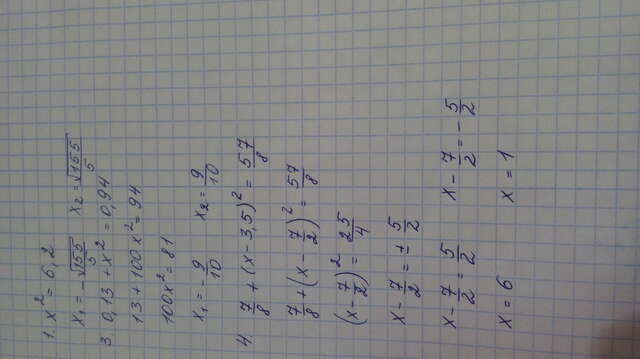 1. x² = 6,2
x₁ = -√155/5 x₂ = √155/5
3. 0,13 + x² = 0,94
13 + 100x² = 94
100x² = 81
x₁ = -9/10 x₂ = 9/10
4. 7/8 + (x - 3,5)² = 57/8
7/8 + (x - 7/2)² = 57/8
(x - 7/2)² = 25/4
x - 7/2 = ± 5/2
x - 7/2 = 5/2 x - 7/2 = -5/2
x = 6 x = 1